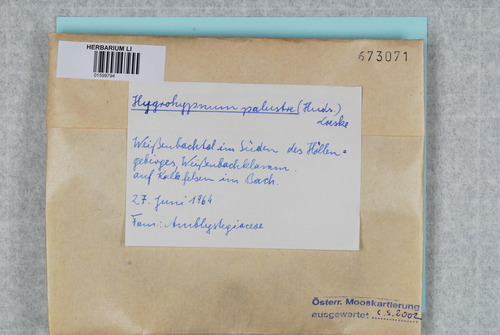 HERBARIUM LI
01599794
673071
Hygrohypnum palustre (Huds.)
Loeske
Weißenbachtal im Süden des Höllen=
gebirges, Weißenbachklamm.
auf Kalkfelsen im Bach.
27. Juni 1964
Fam: Amblystegiaceae
Österr. Mooskartierung
ausgewertet 2002